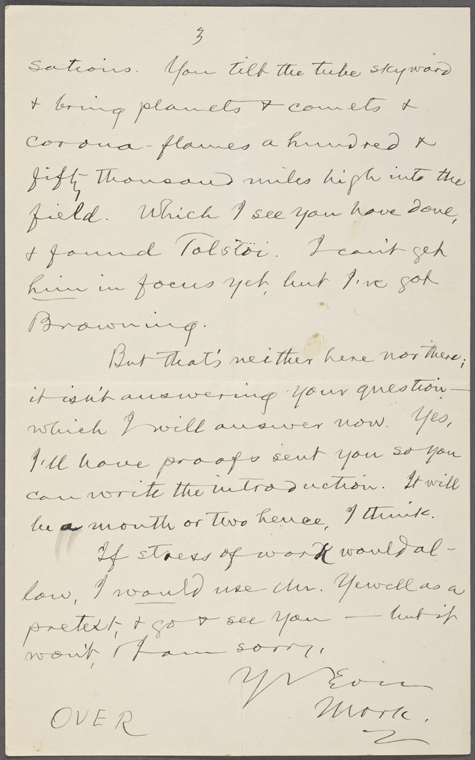 3
sations. You tilt the tube skyward
& bring planets & comets &
corona-flames a hundred &
fifty thousand miles high into the
field. Which I see you have done,
& found Tolstoï. I can't get
him in focus yet, but I've got
Browning.
But that's neither here nor there;
it isn't answering your question—
which I will answer now. Yes,
I'll have proofs sent you so you
can write the introduction. It will
be a month or two hence, I think.
If stress of work would al-
low, I would use Mr. Yewell as a
pretext, & go & see you — but it
won't, & I am sorry.
Yrs Ever
Mark.
OVER